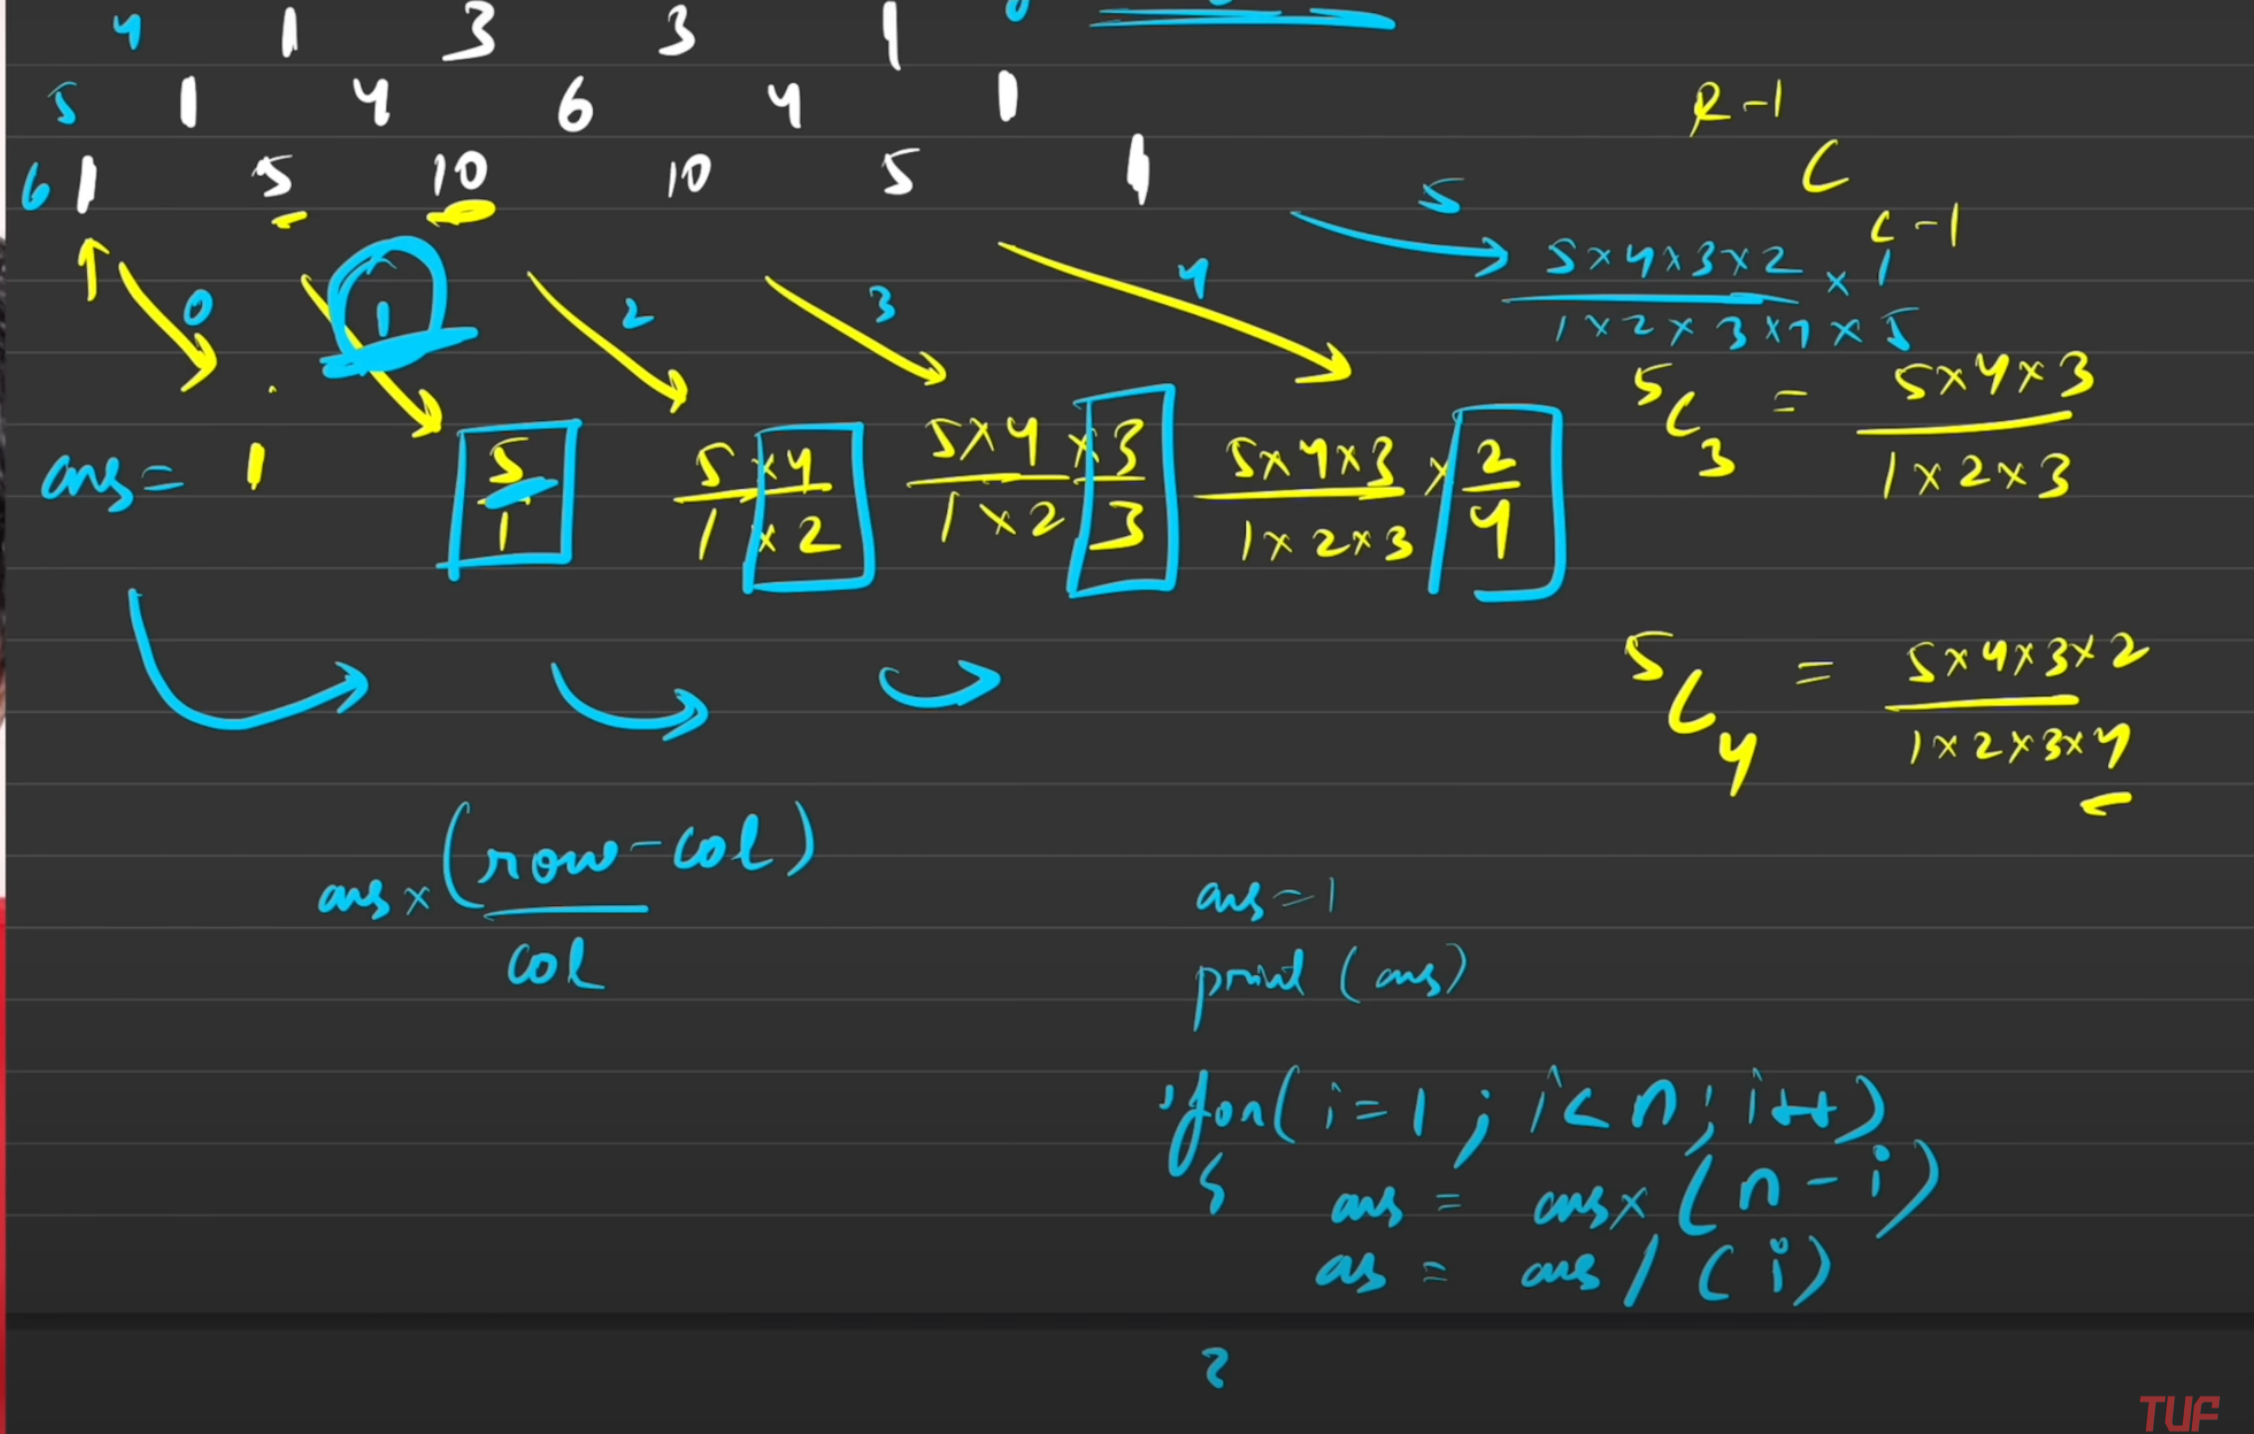 4 1 3 3 1
5 1 4 6 4 1
6 1 5 10 10 5 1
R-1
C
c-1
0 1 2 3 4 5
5×4×3×2 × 1
1×2×3×4×5
5C3 = 5×4×3
1×2×3
ans = 1
5
1
5×4
1×2
5×4×3
1×2 3
5×4×3 × 2
1×2×3 4
5C4 = 5×4×3×2
1×2×3×4
ans × (row-col)
col
ans = 1
print (ans)
for(i=1; i<n; i++)
{ ans = ans × (n-i)
as = ans / (i)
TUF